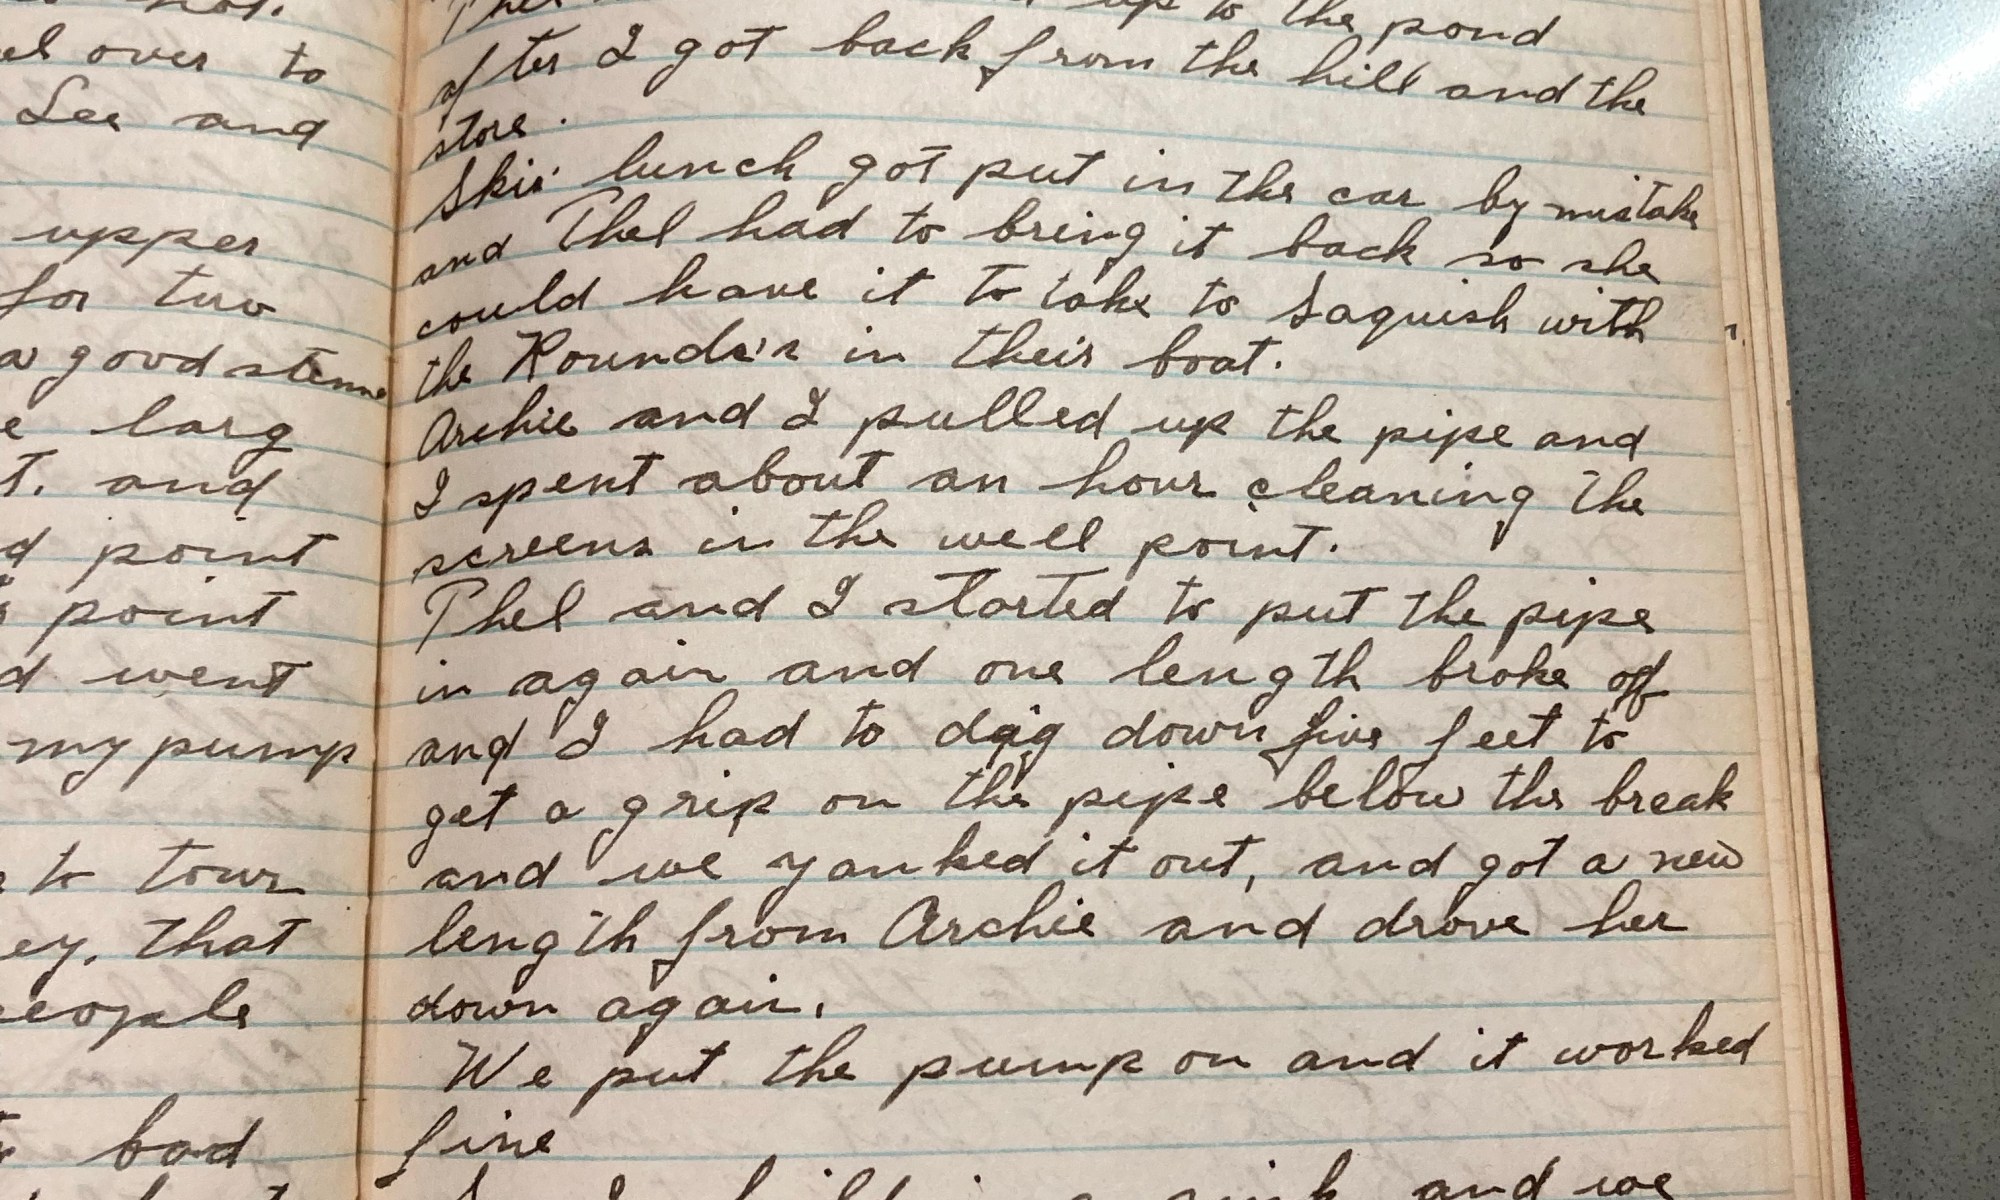 over to
Lee and
upper
for two
a good stemme
larg
and
point
point
went
my pump
to tour
that
people
bad
up to the pond
after I got back from the hill and the
store.
Skis' lunch got put in the car by mistake
and Thel had to bring it back so she
could have it to take to Saquish with
the in their boat.
Archie and I pulled up the pipe and
I spent about an hour cleaning the
screens in the well point.
Thel and I started to put the pipe
in again and one length broke off
and I had to dig down five feet to
get a grip on the pipe below the break
and we yanked it out, and got a new
length from Archie and drove her
down again.
We put the pump on and it worked
fine
and we